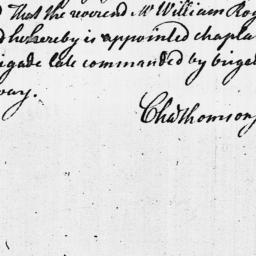 That the reverend Mr William Rog
d he hereby is appointed chapla
rigade late commanded by briga
way.
Cha thomson